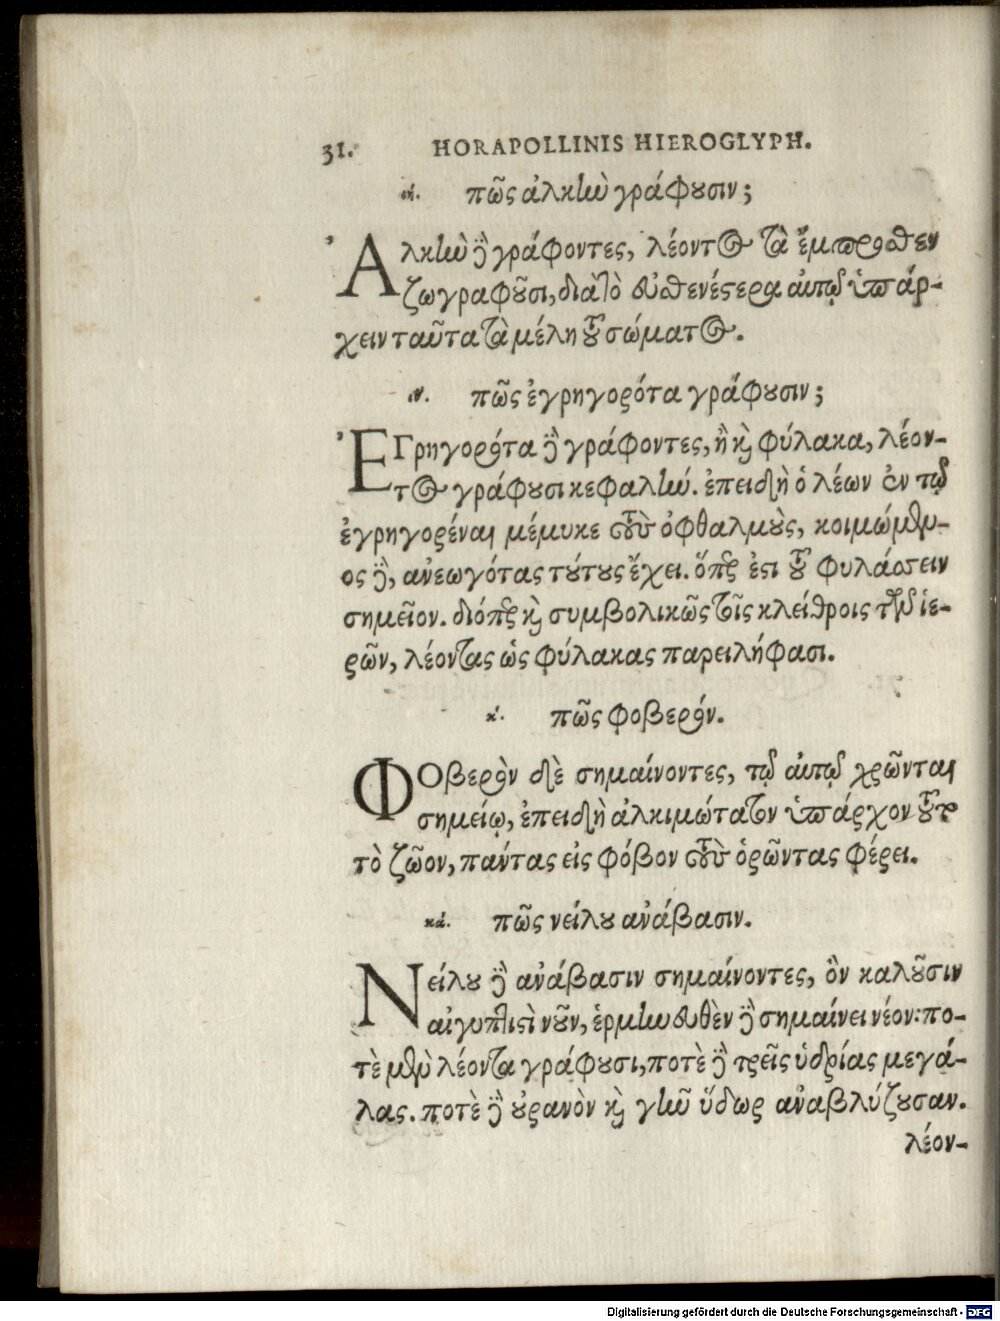 31. HORAPOLLINIS HIEROGLYPH.
πῶς ἀλκὴν γράφουσιν;
Ἀλκὴν δὲ γράφοντες, λέοντος τὰ ἔμπροσθεν
ζωγραφοῦσι, διὰ τὸ εὐσθενέστερα αὐτῷ ὑπάρ-
χειν ταῦτα τὰ μέλη τοῦ σώματος.
πῶς ἐγρηγορότα γράφουσιν;
Ἐγρηγορότα δὲ γράφοντες, ἢ καὶ φύλακα, λέον-
τος γράφουσι κεφαλήν. ἐπειδὴ ὁ λέων ἐν τῷ
ἐγρηγορέναι μέμυκε τοὺς ὀφθαλμοὺς, κοιμώμεν-
ος δὲ, ἀνεωγότας τούτους ἔχει. ὅπερ ἐστι τοῦ φυλάσσειν
σημεῖον. διόπερ καὶ συμβολικῶς τοῖς κλείθροις τῶν ἱε-
ρῶν, λέοντας ὡς φύλακας παρειλήφασι.
κ. πῶς φοβερόν.
Φοβερὸν δὲ σημαίνοντες, τῷ αὐτῷ χρῶνται
σημείῳ, ἐπειδὴ ἀλκιμώτατον ὑπάρχον τοῦ-
το τὸ ζῶον, πάντας εἰς φόβον τοὺς ὁρῶντας φέρει.
κά. πῶς νείλου ἀνάβασιν.
Νείλου δὲ ἀνάβασιν σημαίνοντες, ὃν καλοῦσιν
αἰγυπτιστὶ νοῦν, ἑρμηνευθὲν δὲ σημαίνει νέον: πο-
τὲ μὲν λέοντα γράφουσι, ποτὲ δὲ τρεῖς ὑδρίας μεγά-
λας. ποτὲ δὲ οὐρανὸν καὶ γῆν ὕδωρ ἀναβλύζουσαν.
λέον-
Digitalisierung gefördert durch die Deutsche Forschungsgemeinschaft - DFG